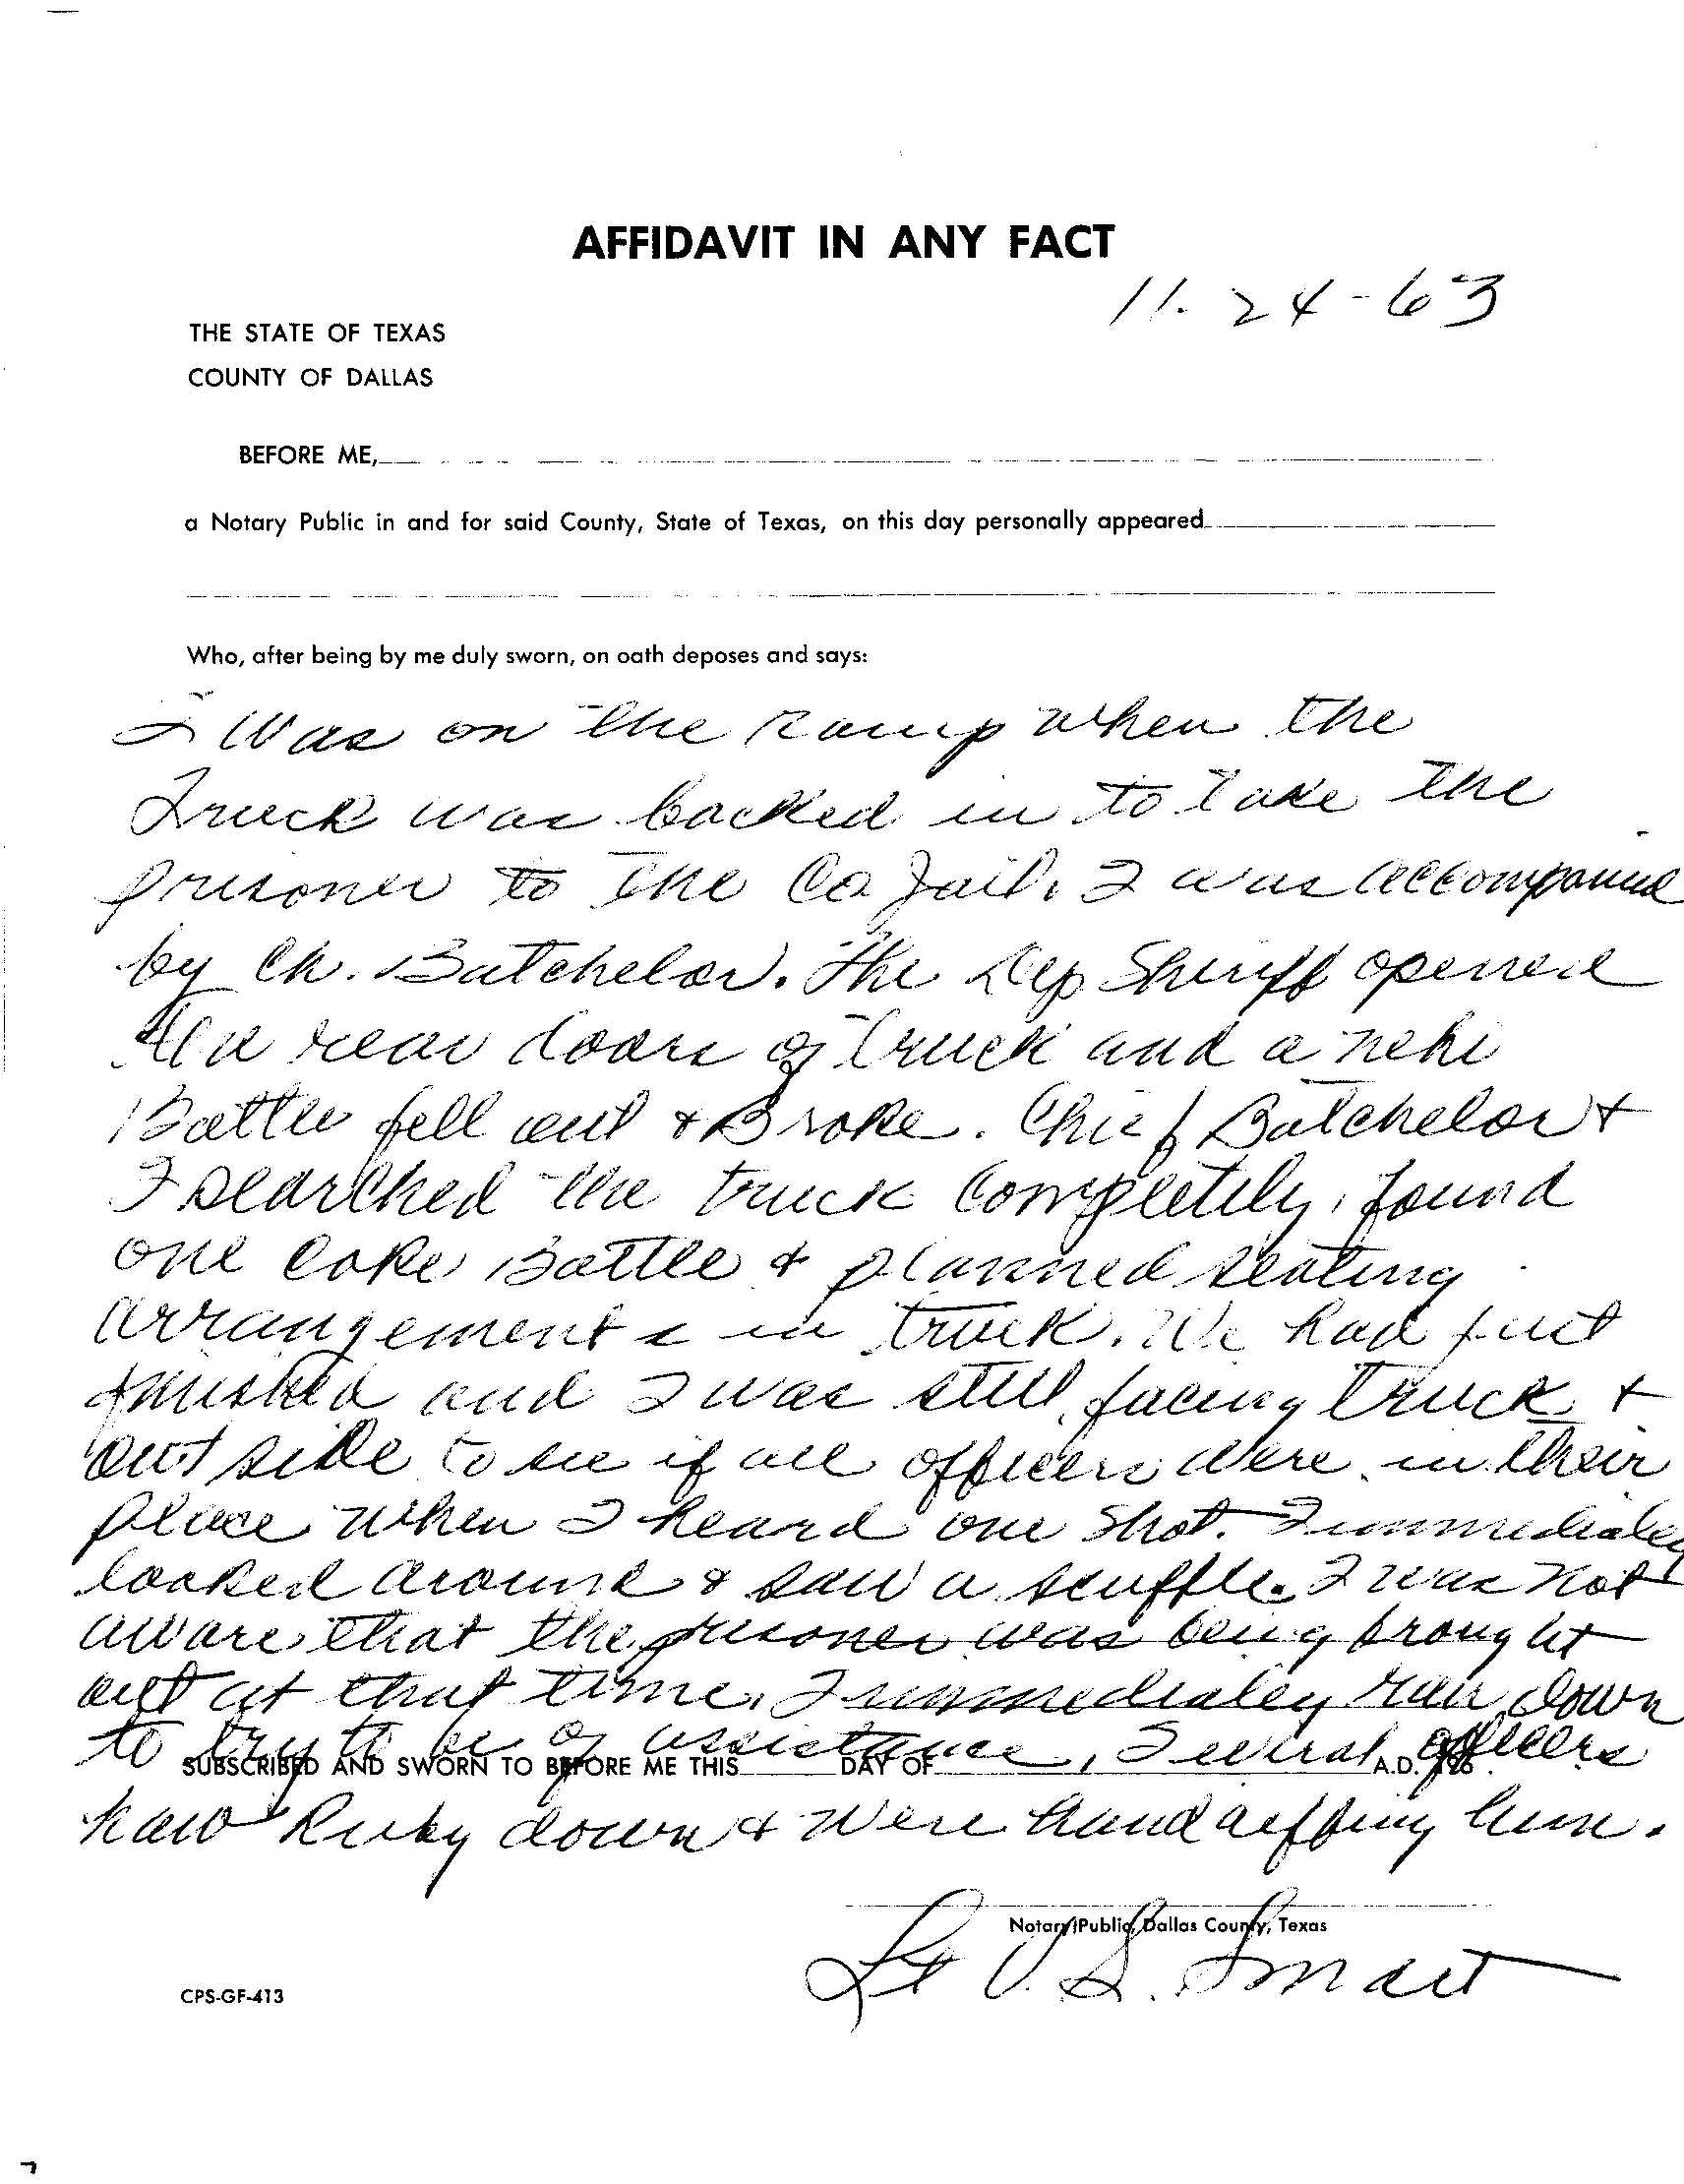 AFFIDAVIT IN ANY FACT
11-24-63
THE STATE OF TEXAS
COUNTY OF DALLAS
BEFORE ME,
a Notary Public in and for said County, State of Texas, on this day personally appeared
Who, after being by me duly sworn, on oath deposes and says:
I was on the ramp when the
Truck was backed in to take the
prisoner to the Co Jail. I was accompanied
by Ch. Batchelor. The Dep Sheriff opened
the rear doors of Truck and a nehi
Bottle fell out & Broke. Chief Batchelor &
I searched the truck completely, found
one coke Bottle & planned seating
arrangements in truck. We had just
finished and I was still facing truck &
out side to see if all officers were in their
place when I heard one shot. I immediatley
looked around & saw a scuffle. I was not
aware that the prisoner was being brought
out at that time. I immediatley ran down
to try to be of assistance, Several officers
SUBSCRIBED AND SWORN TO BEFORE ME THIS DAY OF A.D. 196
had Ruby down & were handcuffing him.
Notary Public, Dallas County, Texas
Lt V. S. Smart
CPS-GF-413